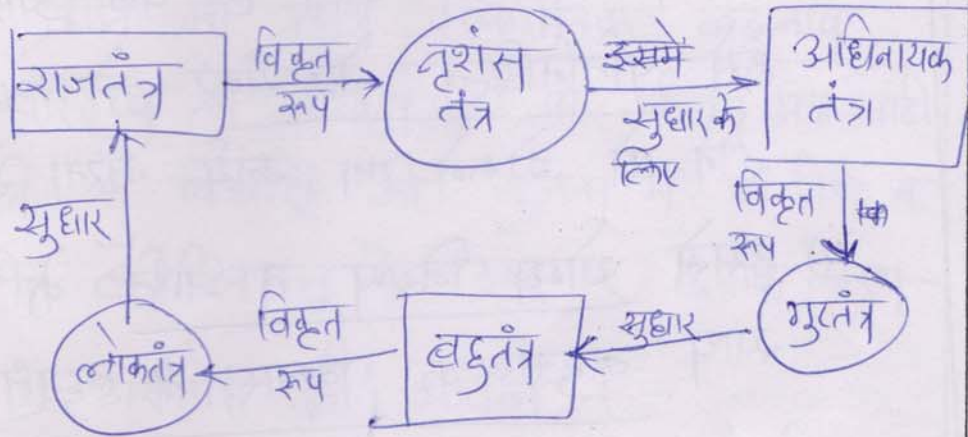 राजतंत्र
विकृत
रूप
नृशंस
तंत्र
इसमें
सुधार के
लिए
अधिनायक
तंत्र
विकृत
रूप
गुटतंत्र
सुधार
बहुतंत्र
विकृत
रूप
लोकतंत्र
सुधार